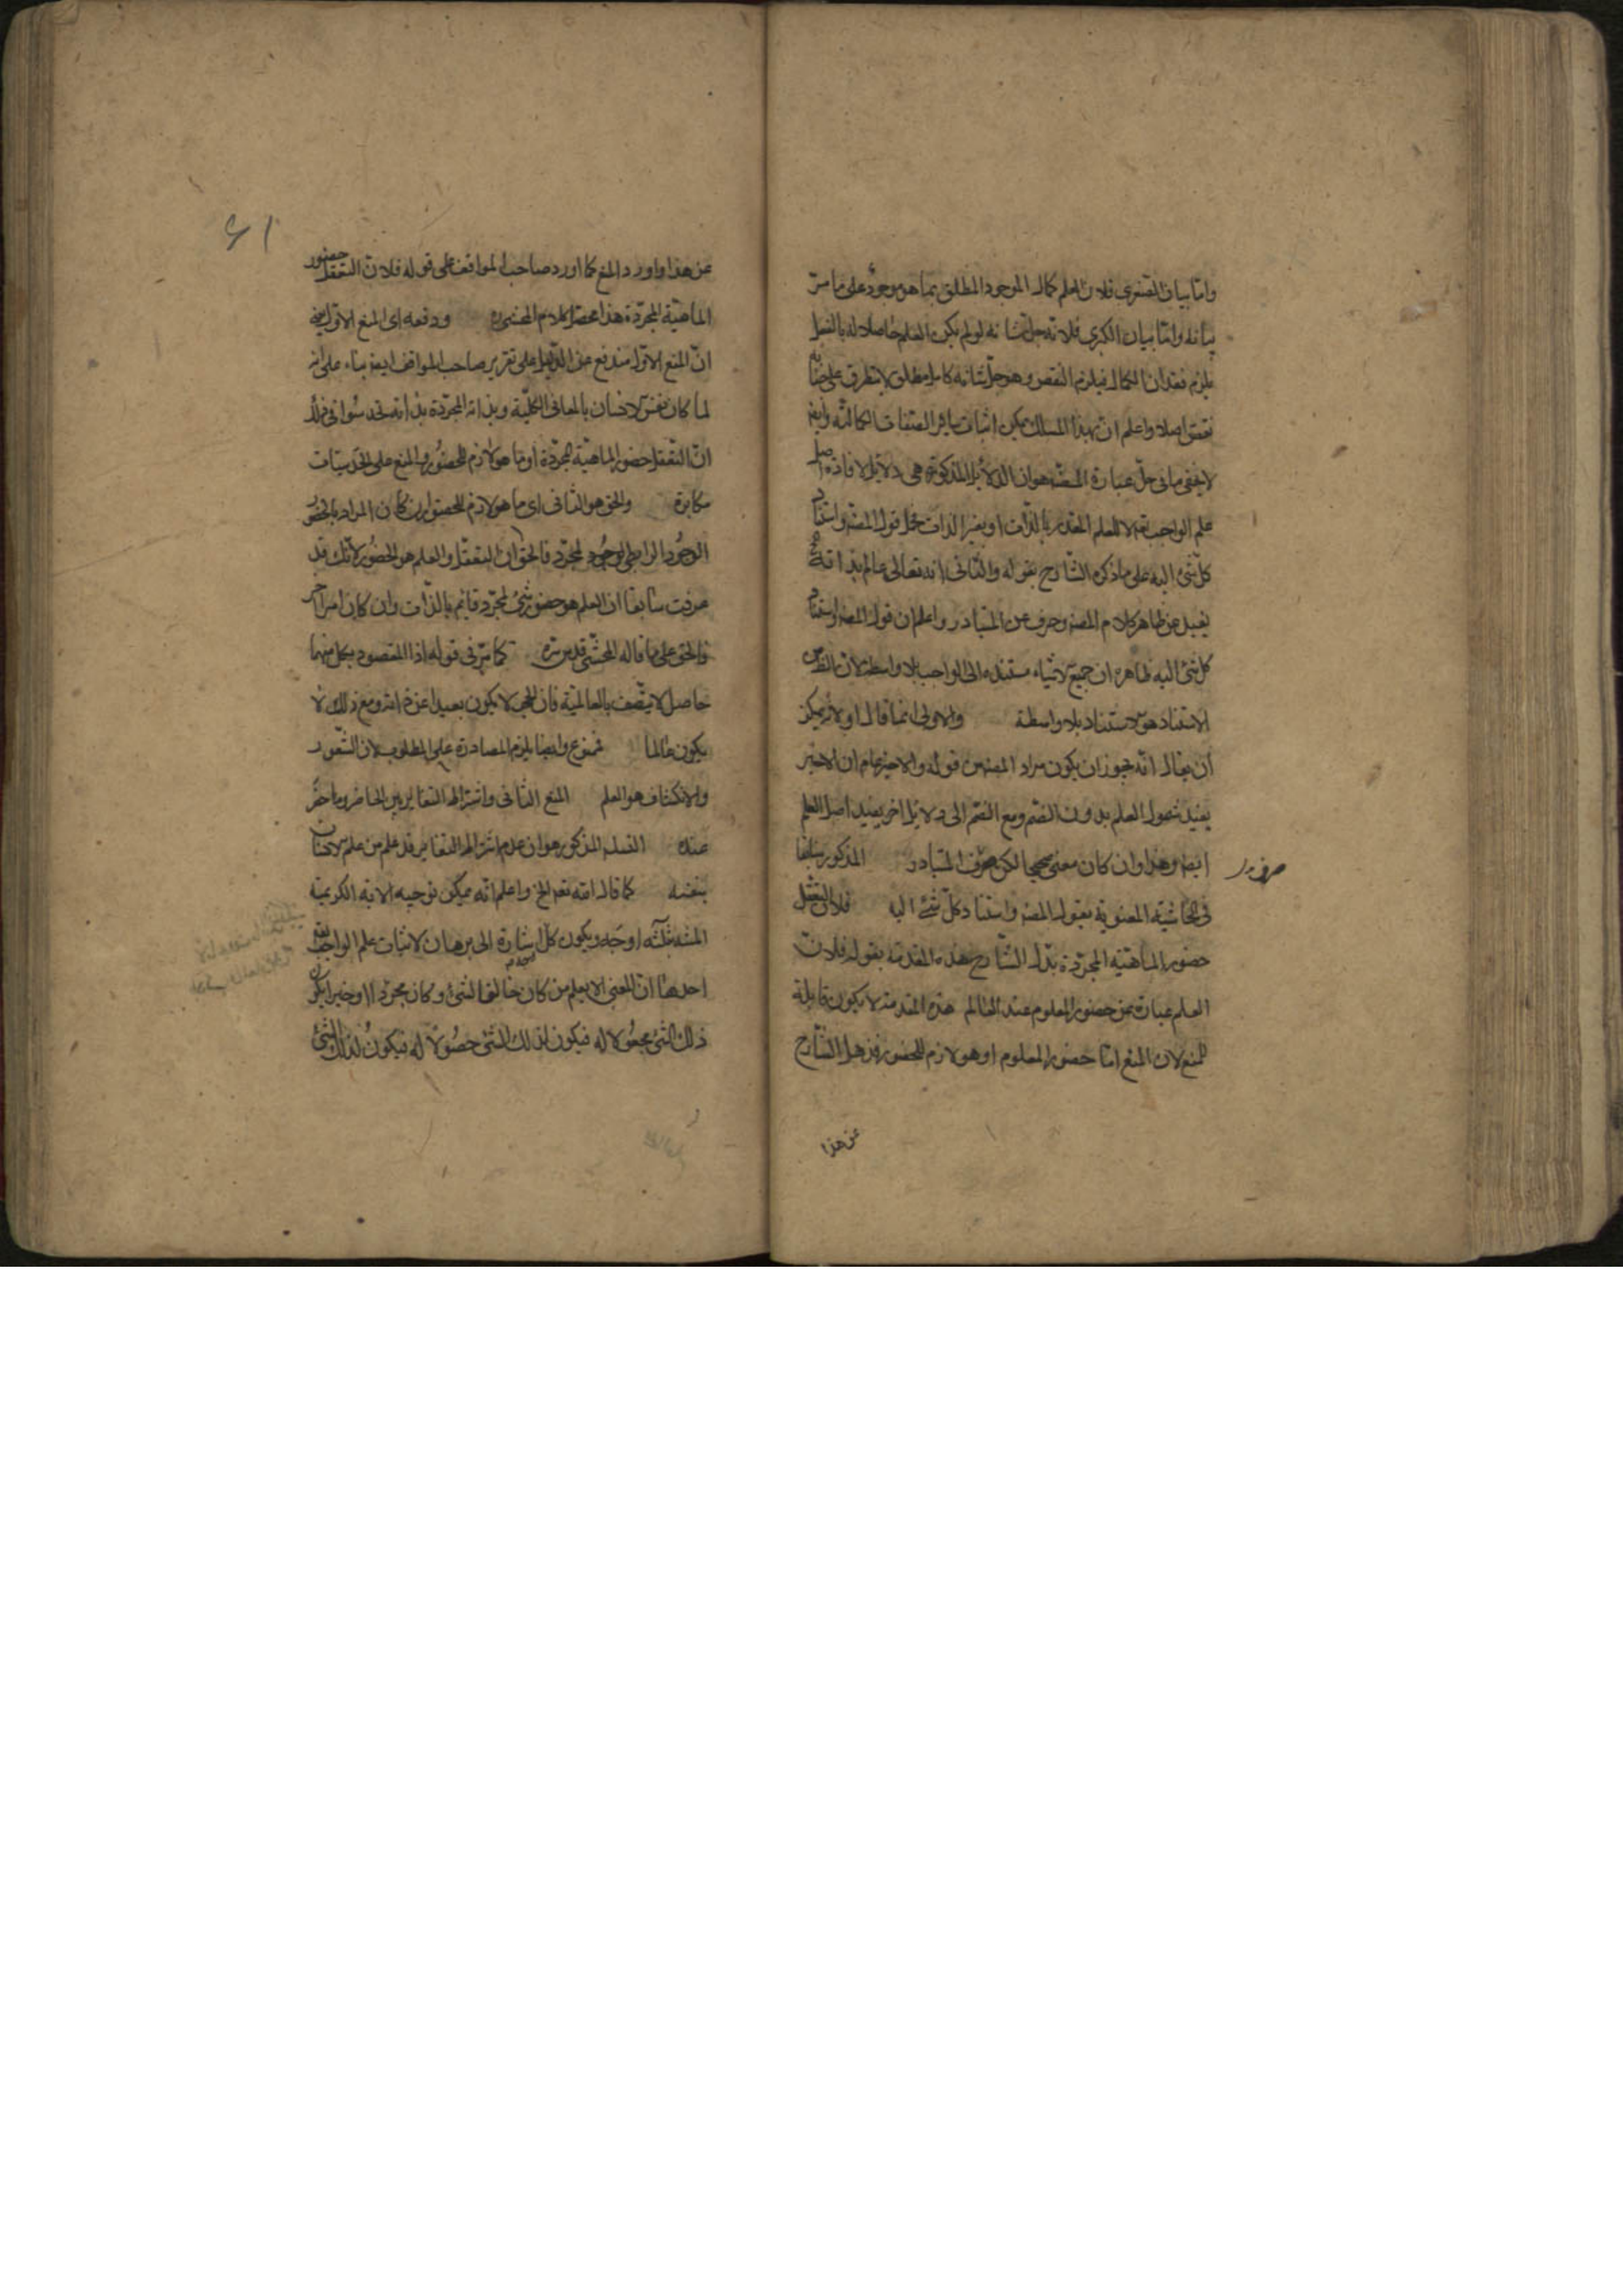 واما بيان الصغرى فلان العلم كمال الموجود المطلق بما هو موجود على ما مر
بيانه واما بيان الكبرى فلانه جل شانه لو لم يكن العلم حاصلا له بالفعل
يلزم فقدان الكمال فيلزم النقص وهو جل شانه كامل مطلق لا يتطرق على جنابه
نقص اصلا واعلم ان بهذا المسلك يمكن اثبات سائر الصفات الكمالية وايضا
لا يخفى ما فى حل عبارة المصنف هو ان الدلائل المذكورة هى دلائل لافادة اصل
علم الواجب تعالى لا للعلم المقدر بالذات او بغير الذات فحمل قول المصنف واستناد
كل شئ اليه على ما ذكره الشارح بقوله والثانى انه تعالى عالم بذاته
بعيد عن ظاهر كلام المصنف وصرف عن المتبادر واعلم ان قول المصنف واستناد
كل شئ اليه ظاهره ان جميع الاشياء مستندة الى الواجب بلا واسطة لان الظاهر من
الاستناد هو الاستناد بلا واسطة والاولى انما قال اولا يمكن
ان يقال انه يجوز ان يكون مراد المصنف من قوله والاخير عام ان الاخير
يفيد شمول العلم بدون الضم ومع الضم الى دلائل اخر يفيد اصل العلم
ايضا وهذا وان كان معنى صحيحا لكن صرف المتبادر المذكور سابقا
فى الحاشية المعنونة بقول المصنف واستناد كل شئ اليه فلان التعقل
حضور الماهية المجردة بدل الشارح هذه المقدمة بقوله فلان
العلم عبارة عن حضور المعلوم عند العالم هذه المقدمة لا يكون قابلة
للمنع لان المنع اما حضور المعلوم او هو لازم للحضور فذهل الشارح
عن هذا
٦١
عن هذا واورد المنع كما اورد صاحب المواقف على قوله فلان التعقل حضور
الماهية المجردة هذا محصل كلام المحشى ودفعه اى المنع الاول
ان المنع الاول مندفع عن الدليل على تقرير صاحب المواقف ايضا بناء على انه
لما كان نفس الانسان بالمعانى الكلية وبذاته المجردة بذاته
ان التعقل حضور الماهية المجردة او ما هو لازم للحضور والمنع على الحدسيات
مكابرة والحق هو الثانى اى ما هو لازم للحضور ان كان المراد بالحضور
الوجود الرابطى لوجود المجرد فالحق ان التعقل والعلم هو الحضور لانك قد
عرفت سابقا ان العلم هو حضور شئ لمجرد قائم بالذات وان كان امرا اخر
فالحق على ما قاله المحشى قدس سره كما مر فى قوله اذا المقصود بكل منهما
حاصل لا يتصف بالعالمية فان الحجر لا يكون بعيدا عن ذاته ومع ذلك لا
يكون عالما فممنوع وايضا يلزم المصادرة على المطلوب لان الشعور
والانكشاف هو العلم المنع الثانى واشتراط التغاير بين الحاضر وما حضر
عنده السند المذكور هو ان عدم اشتراط التغاير قد علم من علم الانسان
بنفسه كما قال الله تعالى الخ واعلم انه يمكن توجيه الاية الكريمة
بثلثة اوجه ويكون كل اشارة الى برهان لاثبات علم الواجب تعالى
احدها ان المعنى الا يعلم من كان خالقا لشئ وكان مجردا او خبيرا
ذلك الشئ مجعولا له فيكون لذلك الشئ حصولا له فيكون لذلك الشئ